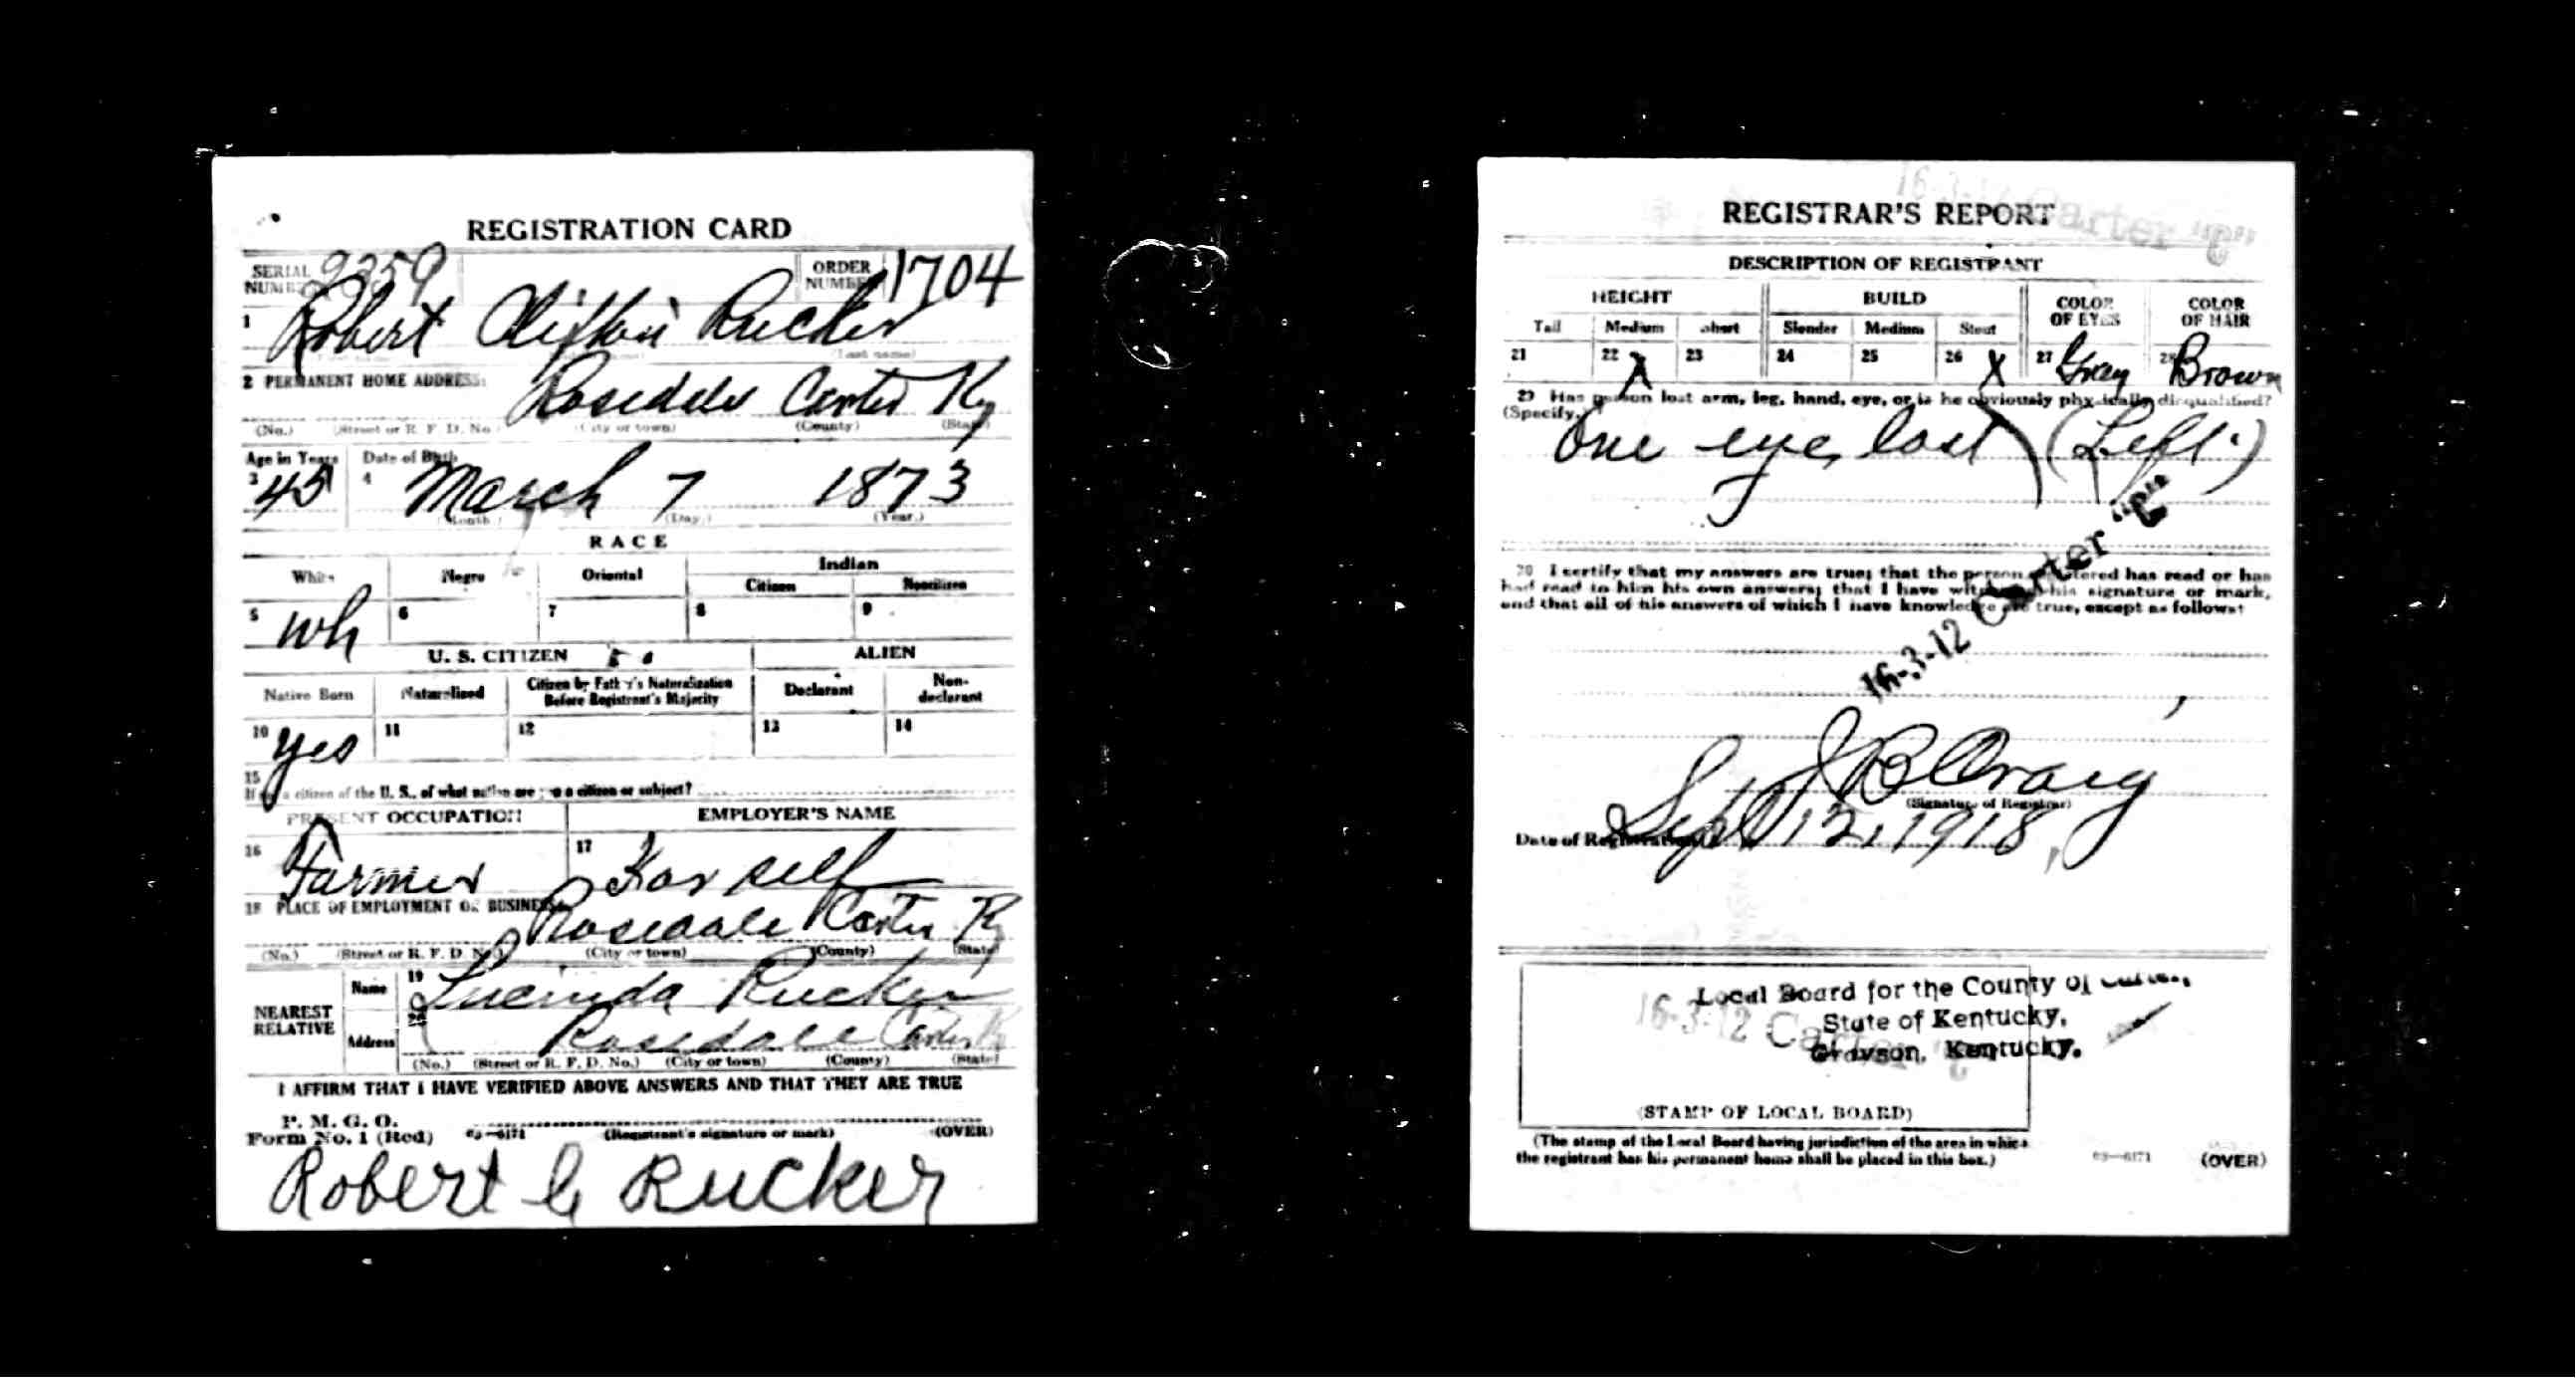 REGISTRATION CARD
SERIAL NUMBER 2359 ORDER NUMBER 1704
1 Robert Clifton Rucker
(Last name)
2 PERMANENT HOME ADDRESS: Rosedale Carter Ky
(No.) (Street or R. F. D. No.) (City or town) (County) (State)
Age in Years Date of Birth
3 45 4 March 7 1873
(Month.) (Day.) (Year.)
RACE
White Negro Oriental Indian
Citizen Noncitizen
5 Wh 6 7 8 9
U. S. CITIZEN ALIEN
Native Born Naturalized Citizen by Father's Naturalization Before Registrant's Majority Declarant Non-declarant
10 Yes 11 12 13 14
15
If not a citizen of the U. S., of what nation are you a citizen or subject?
PRESENT OCCUPATION EMPLOYER'S NAME
16 Farmer 17 For self
18 PLACE OF EMPLOYMENT OR BUSINESS: Rosedale Carter Ky
(No.) (Street or R. F. D. No.) (City or town) (County) (State)
NEAREST RELATIVE Name 19 Lucinda Rucker
Address 20 Rosedale Carter K
(No.) (Street or R. F. D. No.) (City or town) (County) (State)
I AFFIRM THAT I HAVE VERIFIED ABOVE ANSWERS AND THAT THEY ARE TRUE
P. M. G. O.
Form No. 1 (Red) 03—6171 (Registrant's signature or mark) (OVER)
Robert C Rucker
16-3-12 Carter "C"
REGISTRAR'S REPORT
DESCRIPTION OF REGISTRANT
HEIGHT BUILD COLOR OF EYES COLOR OF HAIR
Tall Medium Short Slender Medium Stout
21 22 X 23 24 25 26 X 27 Gray 28 Brown
29 Has person lost arm, leg, hand, eye, or is he obviously physically disqualified?
(Specify.)
One eye lost (Left.)
30 I certify that my answers are true; that the person registered has read or has
had read to him his own answers; that I have witnessed his signature or mark,
and that all of his answers of which I have knowledge are true, except as follows:
16-3-12 Carter "C"
J B Craig
(Signature of Registrar)
Date of Registration Sept 12, 1918
Local Board for the County of Carter,
State of Kentucky,
Grayson, Kentucky.
16-3-12 Carter C
(STAMP OF LOCAL BOARD)
(The stamp of the Local Board having jurisdiction of the area in which
the registrant has his permanent home shall be placed in this box.)
03—6171 (OVER)